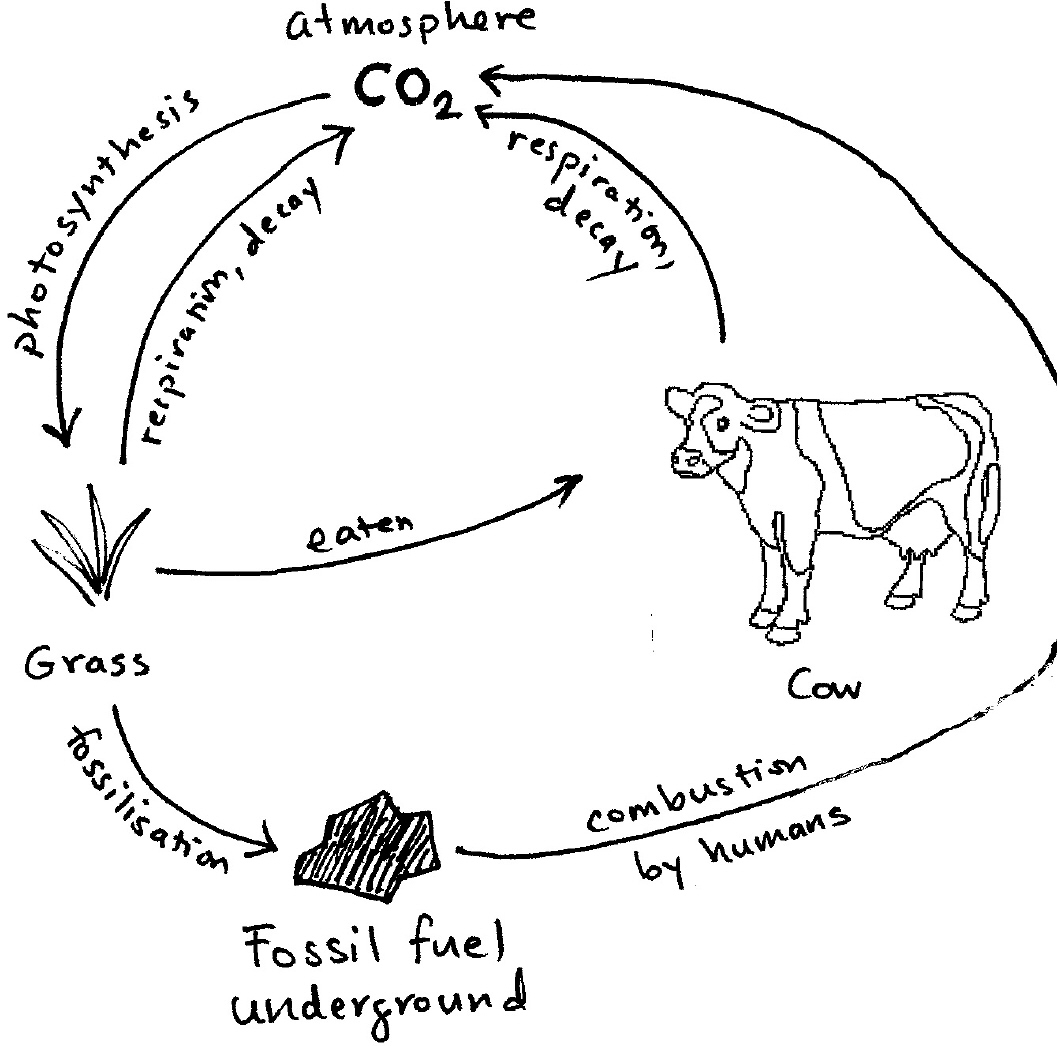 atmosphere
CO₂
photosynthesis
respiration, decay
respiration,
decay
eaten
Grass
Cow
fossilisation
combustion
by humans
Fossil fuel
underground